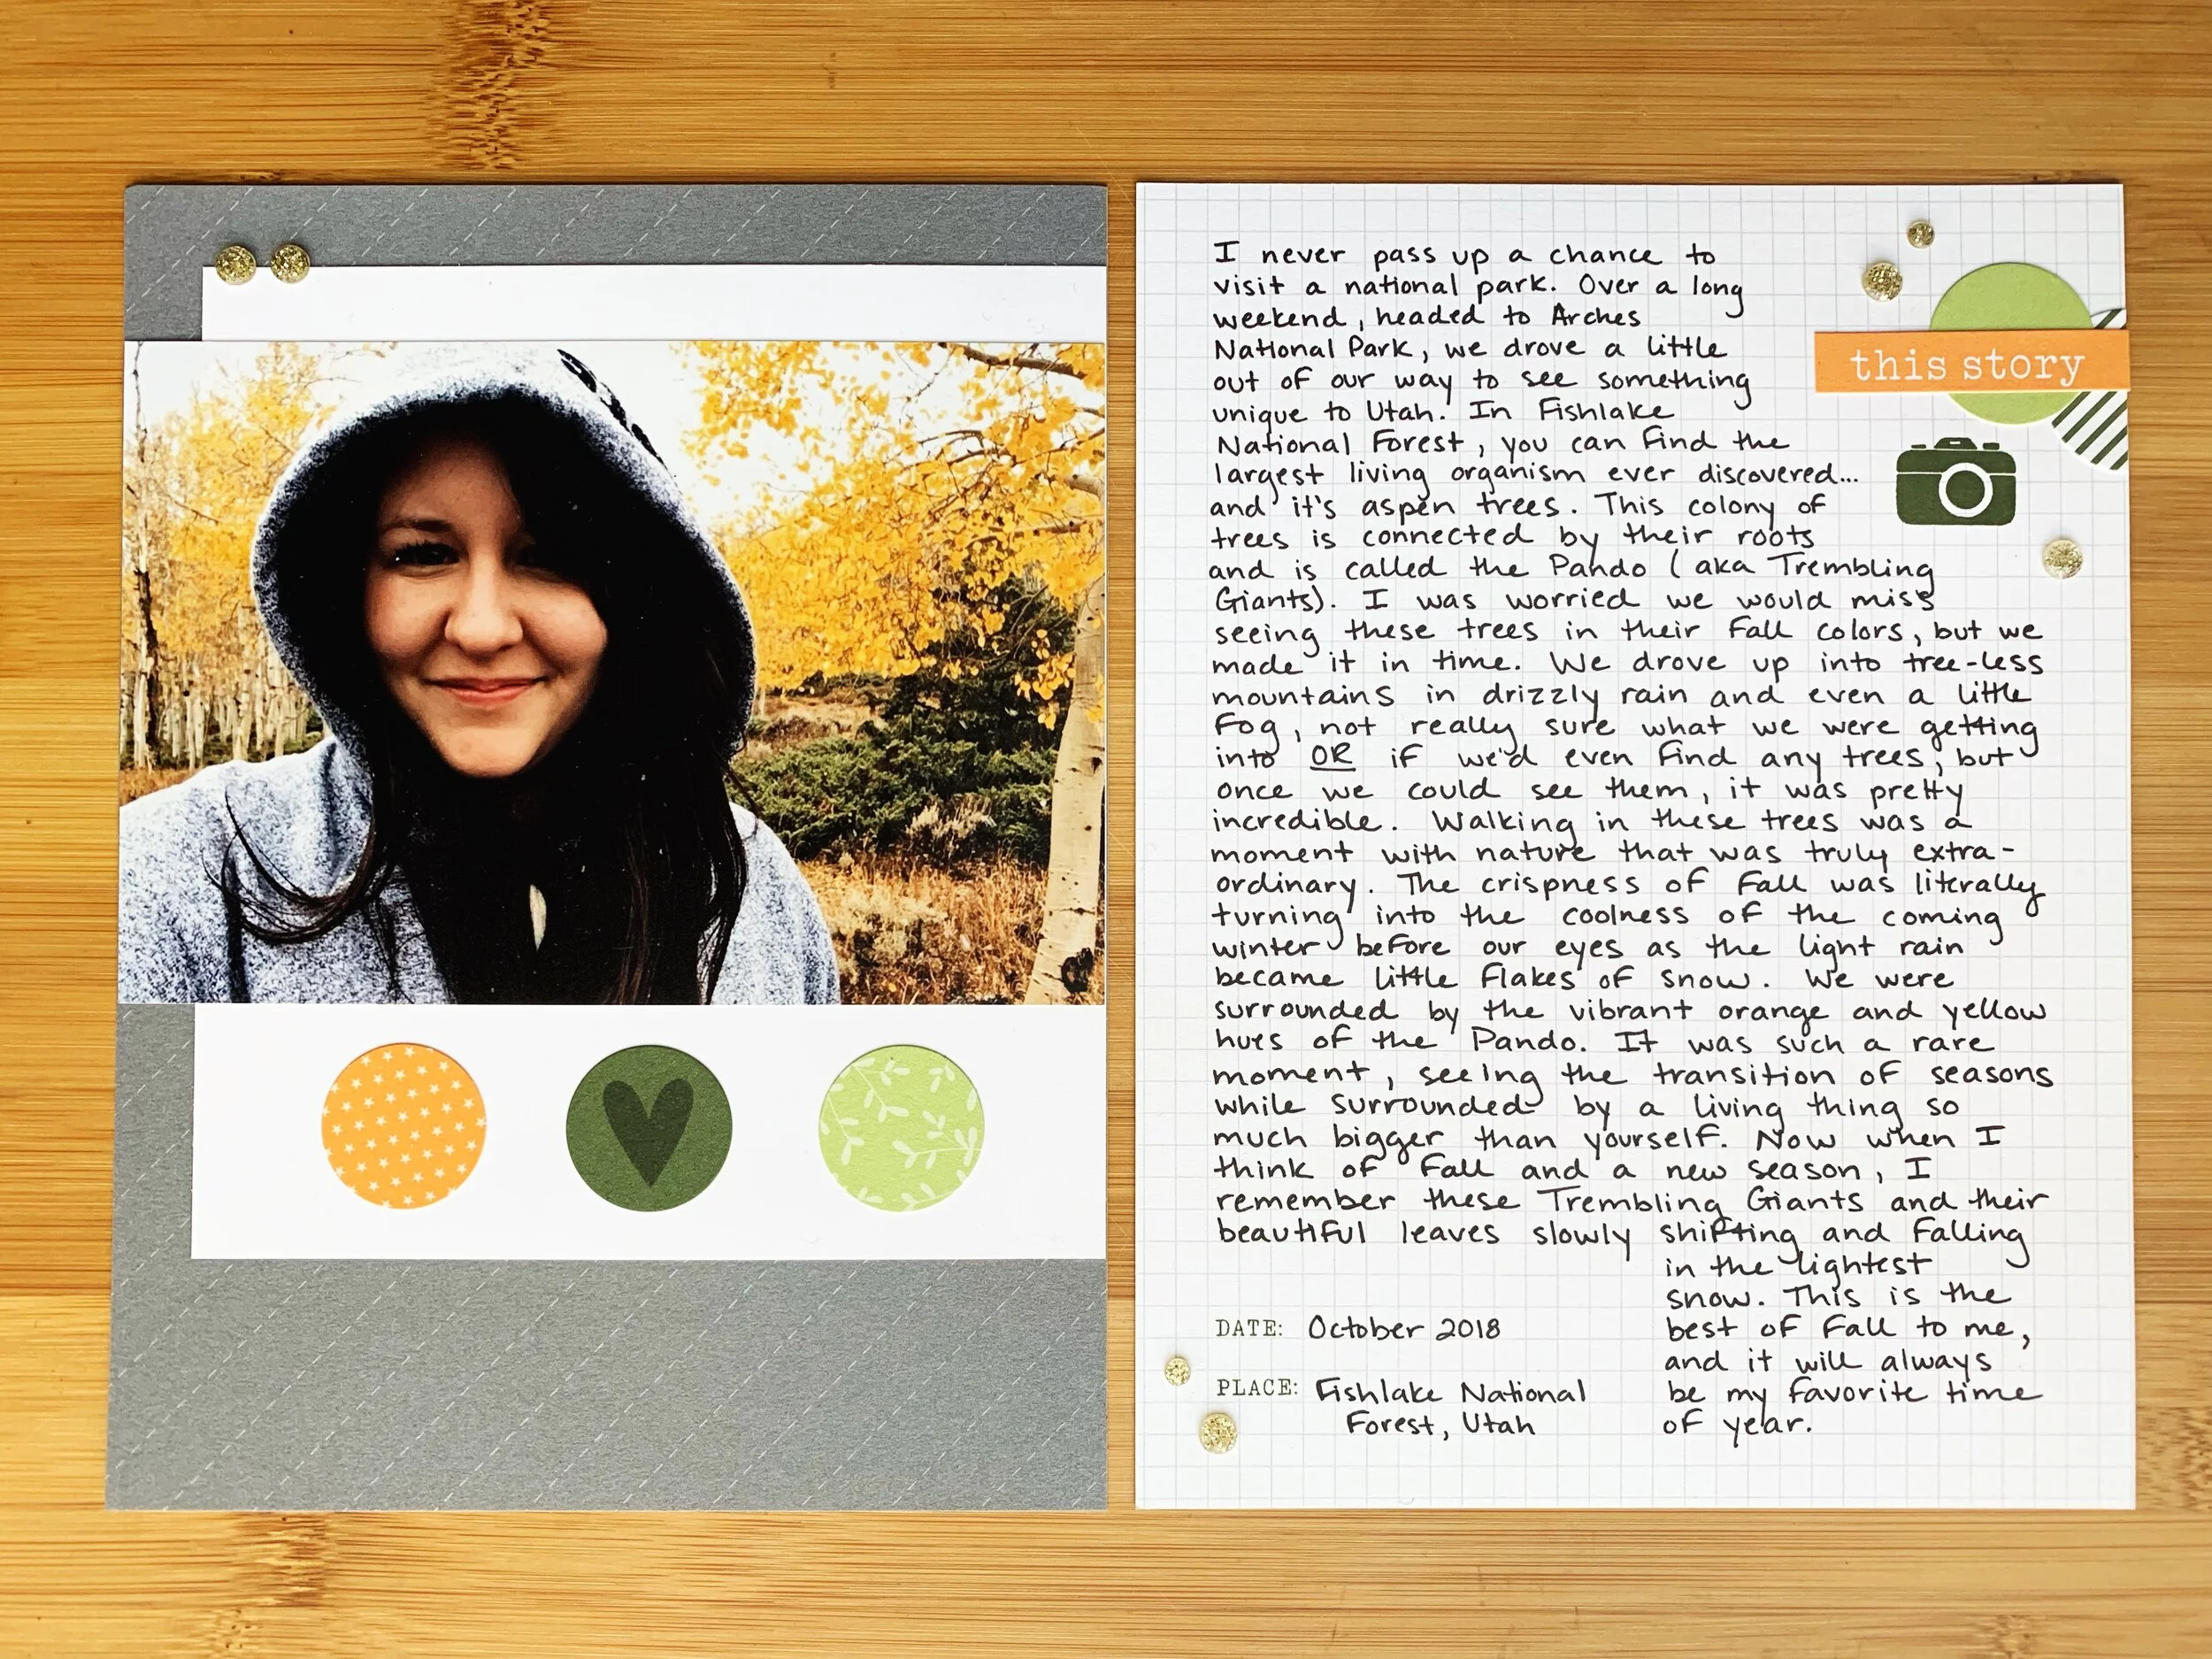 I never pass up a chance to
visit a national park. Over a long
weekend, headed to Arches
National Park, we drove a little
out of our way to see something
unique to Utah. In Fishlake
National Forest, you can find the
largest living organism ever discovered...
and it's aspen trees. This colony of
trees is connected by their roots
and is called the Pando (aka Trembling
Giants). I was worried we would miss
seeing these trees in their fall colors, but we
made it in time. We drove up into tree-less
mountains in drizzly rain and even a little
fog, not really sure what we were getting
into OR if we'd even find any trees, but
once we could see them, it was pretty
incredible. Walking in these trees was a
moment with nature that was truly extra-
ordinary. The crispness of fall was literally
turning into the coolness of the coming
winter before our eyes as the light rain
became little flakes of snow. We were
surrounded by the vibrant orange and yellow
hues of the Pando. It was such a rare
moment, seeing the transition of seasons
while surrounded by a living thing so
much bigger than yourself. Now when I
think of fall and a new season, I
remember these Trembling Giants and their
beautiful leaves slowly shifting and falling
in the lightest
snow. This is the
best of fall to me,
and it will always
be my favorite time
of year.
this story
DATE: October 2018
PLACE: Fishlake National
Forest, Utah